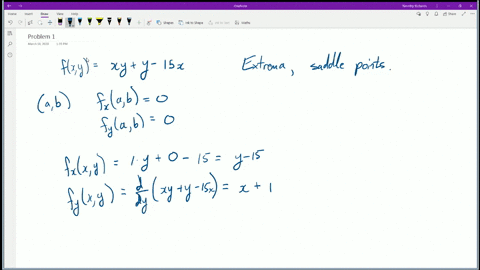 Problem 1
f(x,y) = xy + y - 15x
Extrema, saddle points.
(a,b)
f_x(a,b) = 0
f_y(a,b) = 0
f_x(x,y) = 1·y + 0 - 15 = y-15
f_y(x,y) = d/dy (xy+y-15x) = x + 1